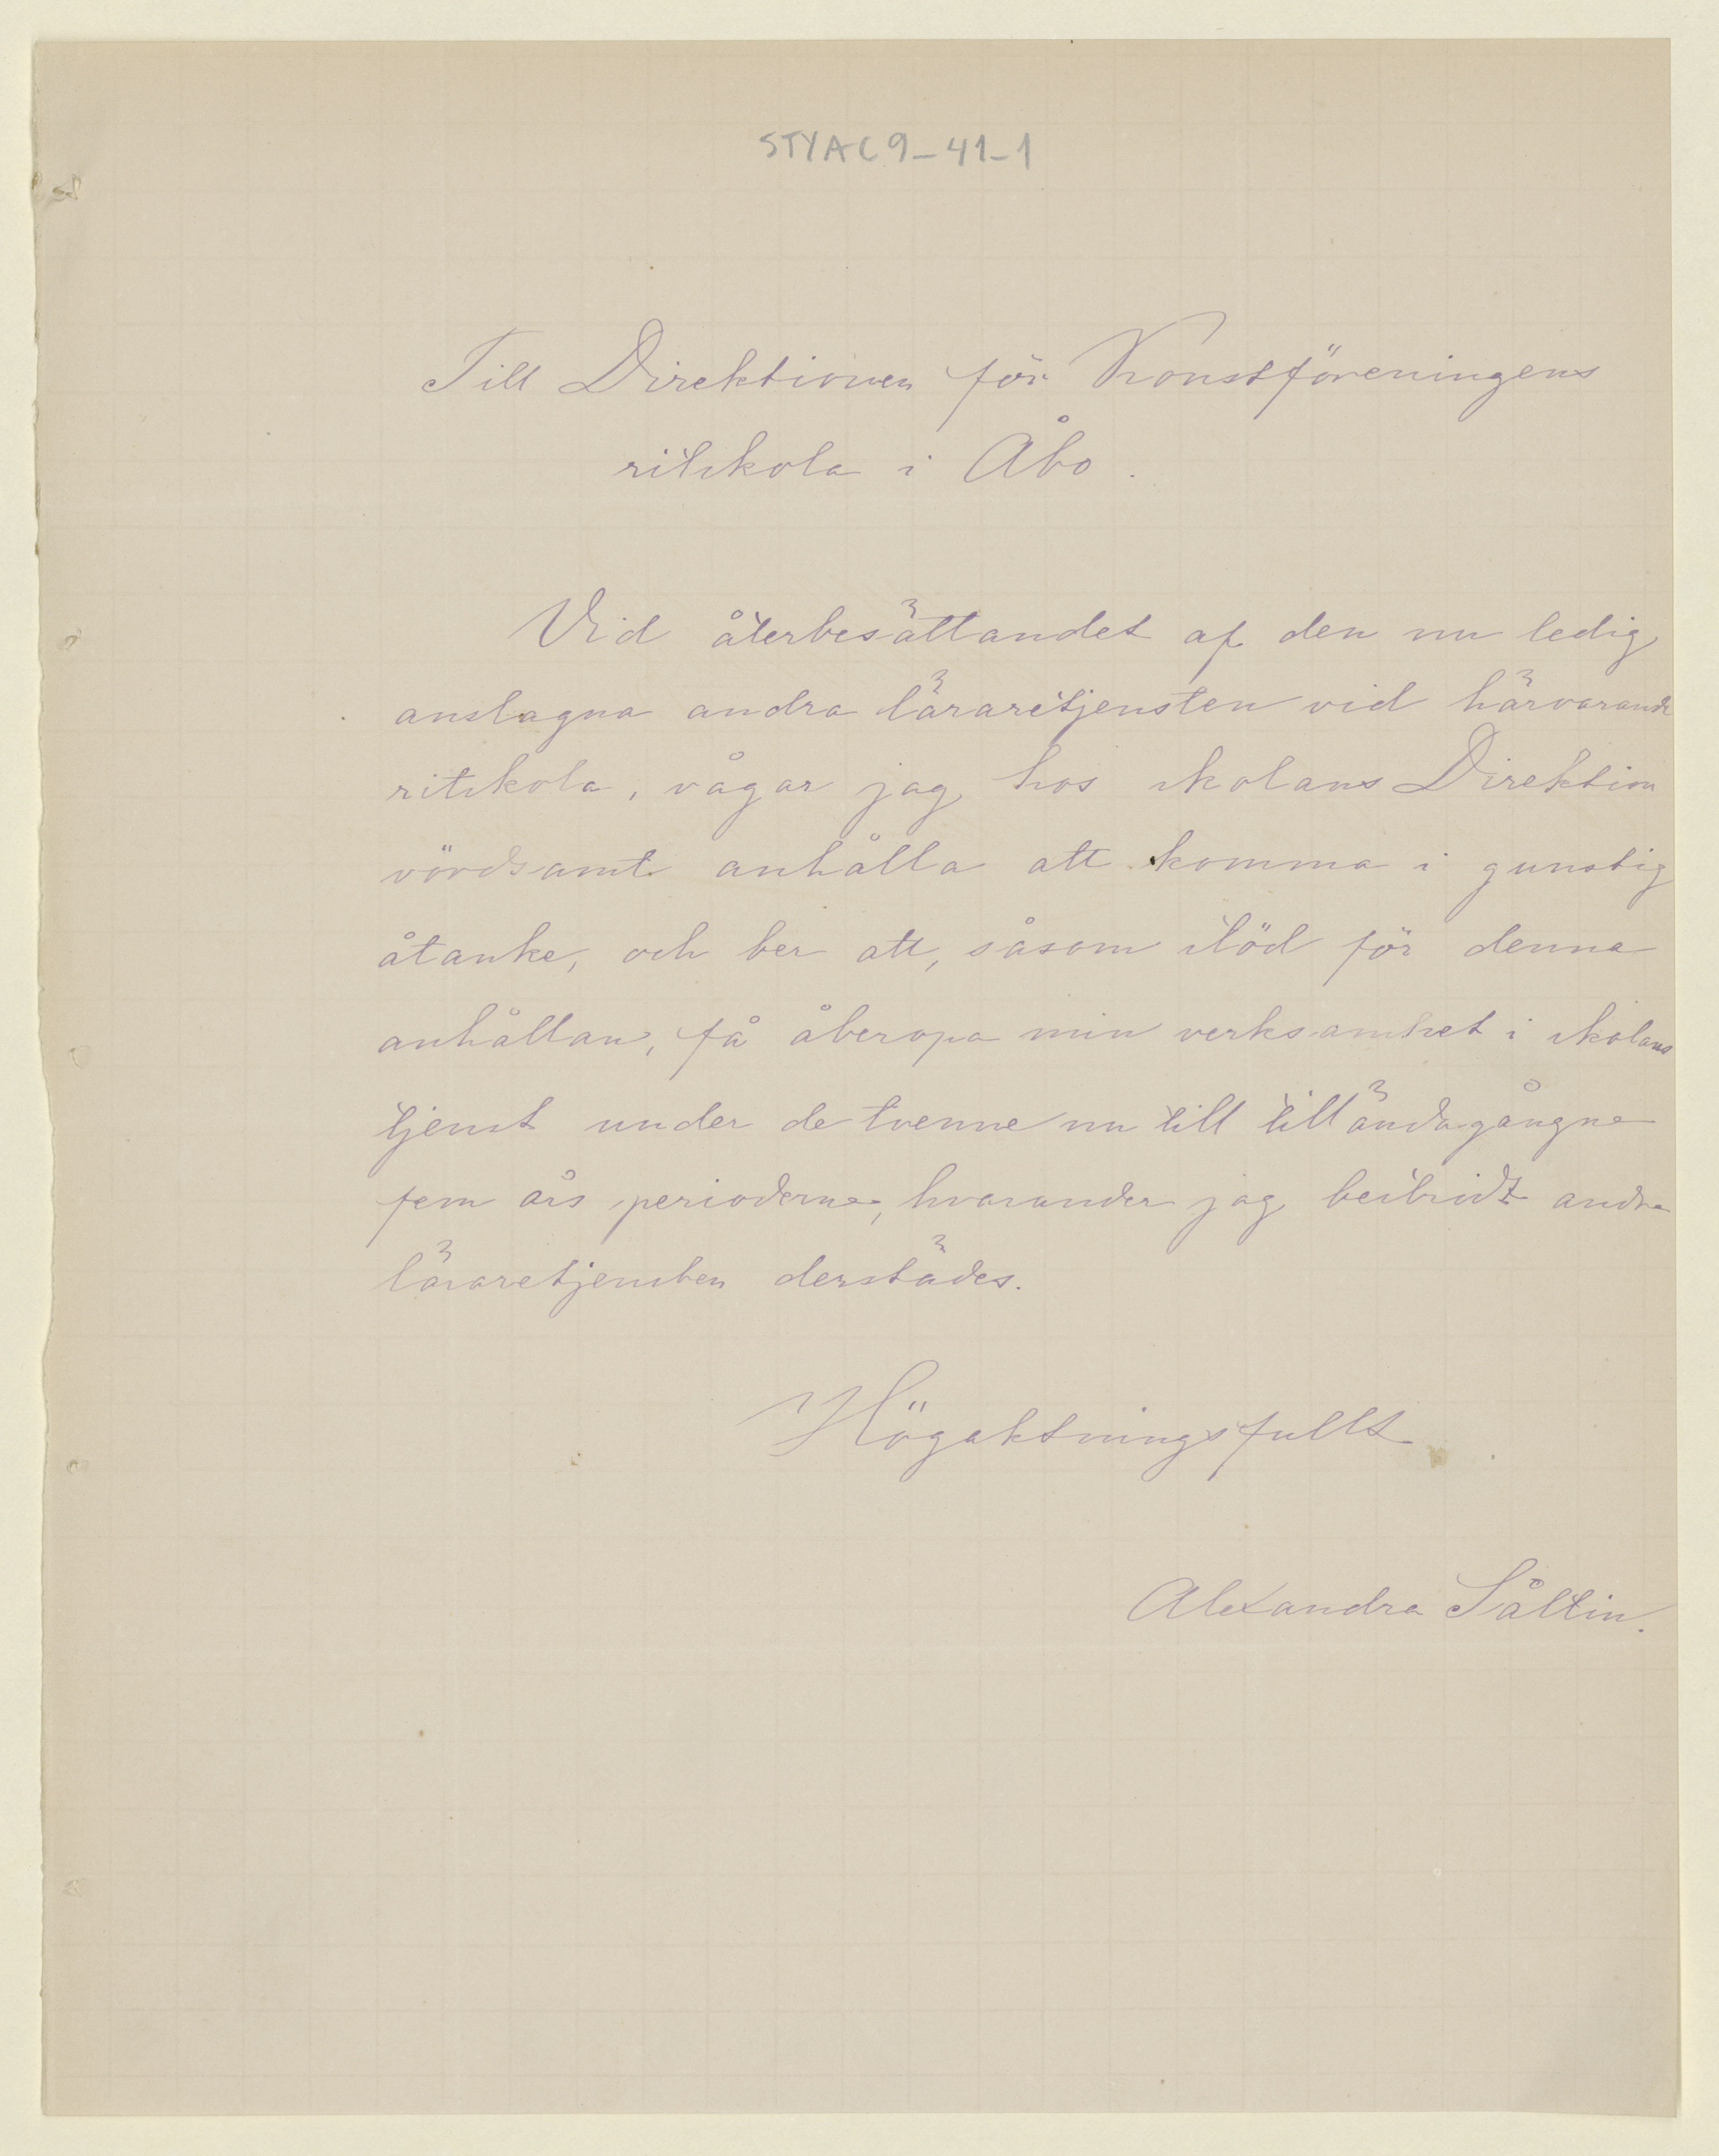 STYAC9-41-1
Till Direktionen för Konstföreningens
ritskola i Åbo.
Vid återbesättandet af den nu ledig
anslagna andra läraretjensten vid härvarande
ritskola, vågar jag hos skolans Direktion
vördsamt anhålla att komma i gunstig
åtanke, och ber att, såsom stöd för denna
anhållan, få åberopa min verksamhet i skolans
tjenst under de tvenne nu till tilländagångna
fem års perioderna, hvarunder jag bestridt andra
läraretjensten derstädes.
Högaktningsfullt
Alexandra Såltin.